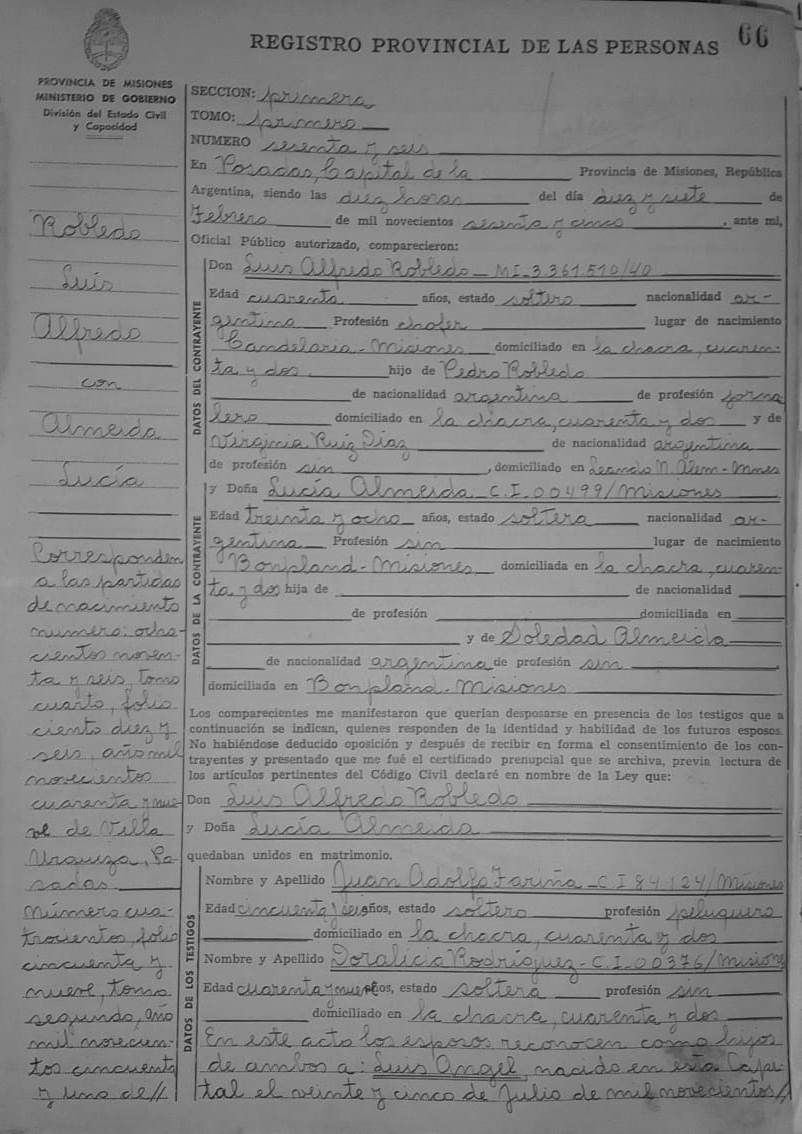 66
REGISTRO PROVINCIAL DE LAS PERSONAS
PROVINCIA DE MISIONES
MINISTERIO DE GOBIERNO
División del Estado Civil
y Capacidad
Robledo
Luís
Alfredo
con
Almeida
Lucía
Corresponden
a las partidas
de nacimiento
numero: ocho-
cientos noven-
ta y seis, tomo
cuarto, folio
ciento diez y
seis, año mil
novecientos
cuarenta y nue-
ve de Villa
Urquiza, Po-
sadas.
Número cua-
trocientos, folio
cincuenta y
nueve, tomo
segundo, año
mil novecien-
tos cincuenta
y uno de//
SECCION: primera
TOMO: primero
NUMERO sesenta y seis
En Posadas, Capital de la Provincia de Misiones, República
Argentina, siendo las diez horas del día diez y siete de
Febrero de mil novecientos sesenta y cinco, ante mi,
Oficial Público autorizado, comparecieron:
DATOS DEL CONTRAYENTE
Don Luis Alfredo Robledo - MI-3.361.510/40
Edad cuarenta años, estado soltero nacionalidad ar-
gentino Profesión chofer lugar de nacimiento
Candelaria - Misiones domiciliado en la chacra, cuaren-
ta y dos hijo de Pedro Robledo
de nacionalidad argentina de profesión jorna
lero domiciliado en la chacra, cuarenta y dos y de
Virginia Ruiz Diaz de nacionalidad argentina
de profesión sin, domiciliado en Leandro N. Alem - Mnes
DATOS DE LA CONTRAYENTE
y Doña Lucía Almeida C.I.00499/Misiones
Edad treinta y ocho años, estado soltera nacionalidad ar-
gentina Profesión sin lugar de nacimiento
Bonpland - Misiones domiciliada en la chacra, cuaren-
ta y dos hija de de nacionalidad
de profesión domiciliado en
y de Soledad Almeida
de nacionalidad argentina de profesión sin
domiciliada en Bonpland - Misiones
Los comparecientes me manifestaron que querían desposarse en presencia de los testigos que a
continuación se indican, quienes responden de la identidad y habilidad de los futuros esposos.
No habiéndose deducido oposición y después de recibir en forma el consentimiento de los con-
trayentes y presentado que me fué el certificado prenupcial que se archiva, previa lectura de
los artículos pertinentes del Código Civil declaré en nombre de la Ley que:
Don Luis Alfredo Robledo
y Doña Lucía Almeida
quedaban unidos en matrimonio.
DATOS DE LOS TESTIGOS
Nombre y Apellido Juan Adolfo Fariña - C.I 84.124/Misiones
Edad cincuenta y seis años, estado soltero profesión peluquero
domiciliado en la chacra, cuarenta y dos
Nombre y Apellido Doralicia Rodriguez - C.I.00376/Misiones
Edad cuarenta y nueve años, estado soltera profesión sin
domiciliado en la chacra, cuarenta y dos
En este acto los esposos reconocen como hijos
de ambos a: Luis Angel, nacido en esta Capi-
tal el veinte y cinco de Julio de mil novecientos//